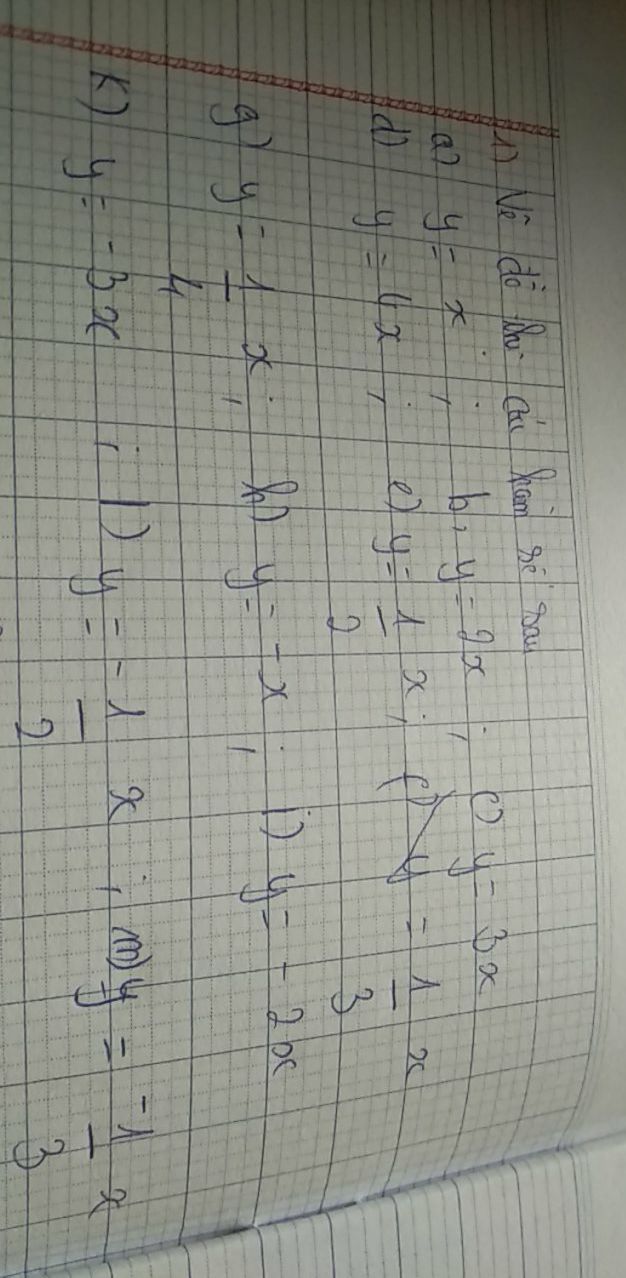 1) Vẽ đồ thị các hàm số sau
a) y = x ; b, y = 2x ; c) y = 3x
d) y = 4x ; e) y = 1/2 x ; f) y = 1/3 x
g) y = 1/4 x ; h) y = -x ; i) y = -2x
k) y = -3x ; l) y = -1/2 x ; m) y = -1/3 x